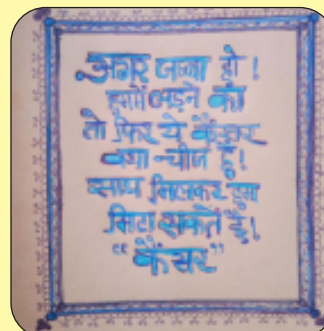 अगर जज्बा हो !
हममें लड़ने का
तो फिर ये कैंसर
क्या चीज है !
साथ मिलकर हम
मिटा सकते है।
"कैंसर"